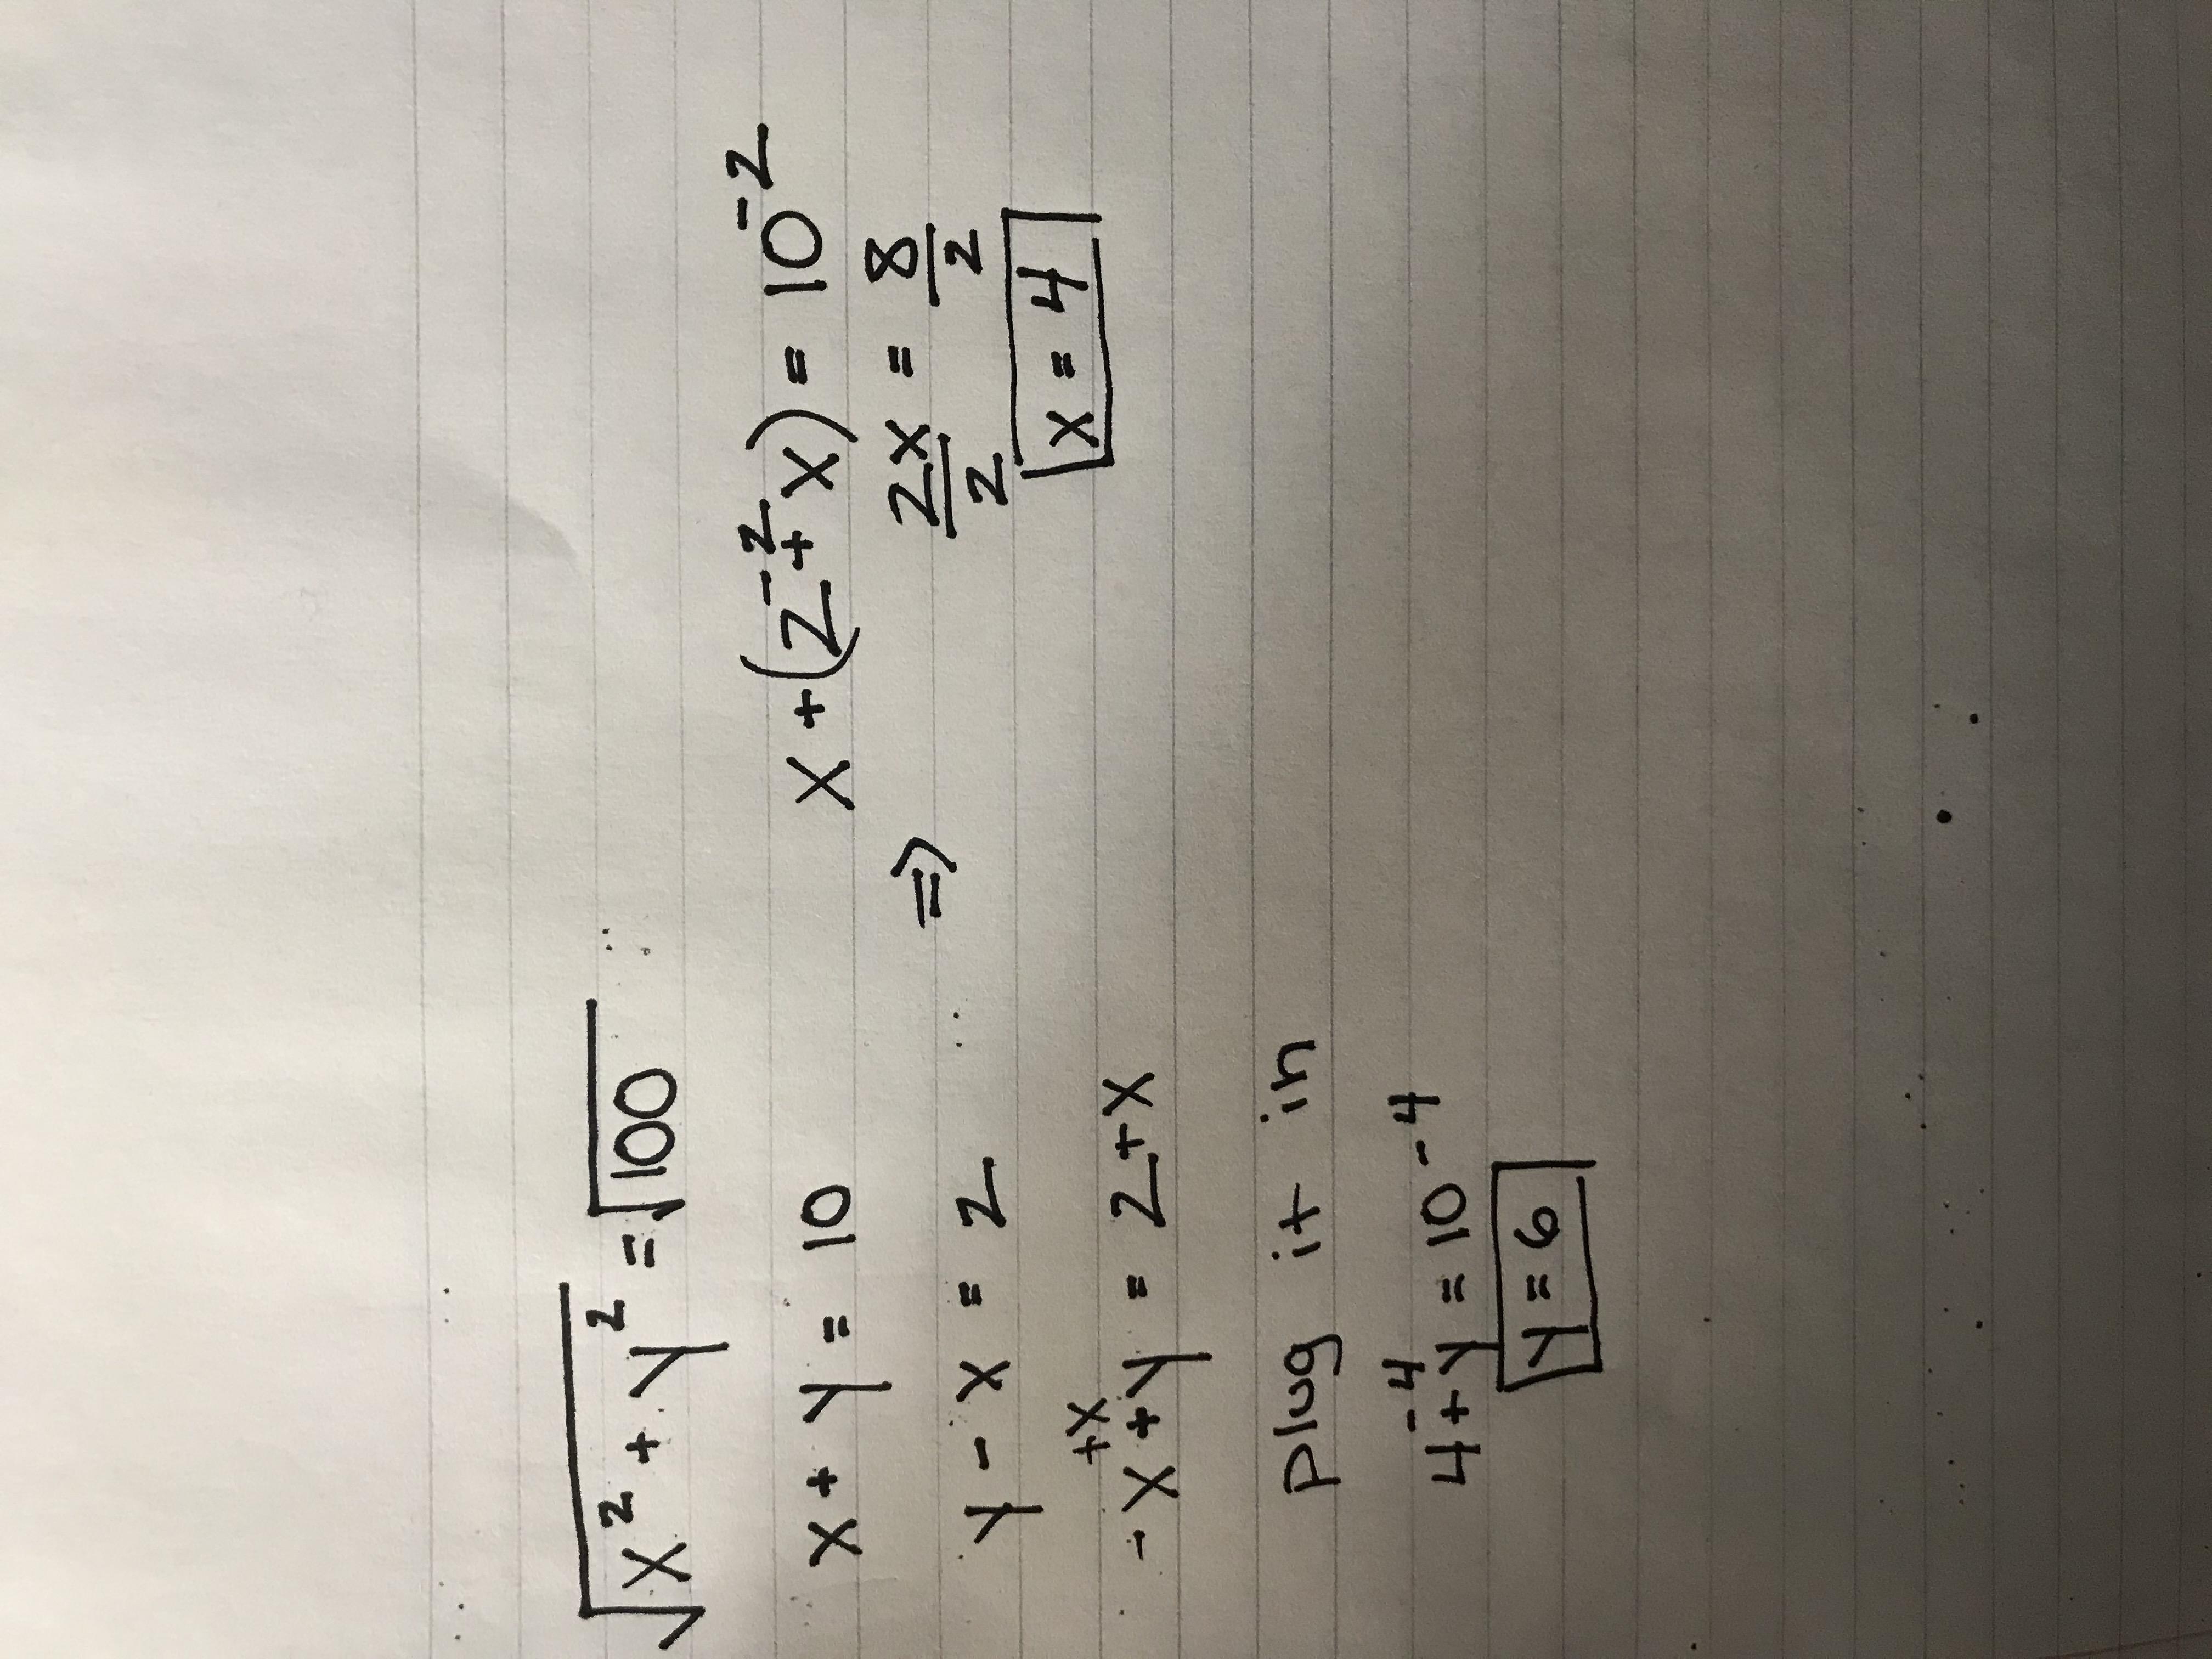 √x² + y² = √100
x + y = 10
y - x = 2
+x
-x + y = 2 + x
plug it in
-4
4 + y = 10 - 4
y = 6
⇒
x + (2⁻² + x) = 10⁻²
2x/2 = 8/2
x = 4